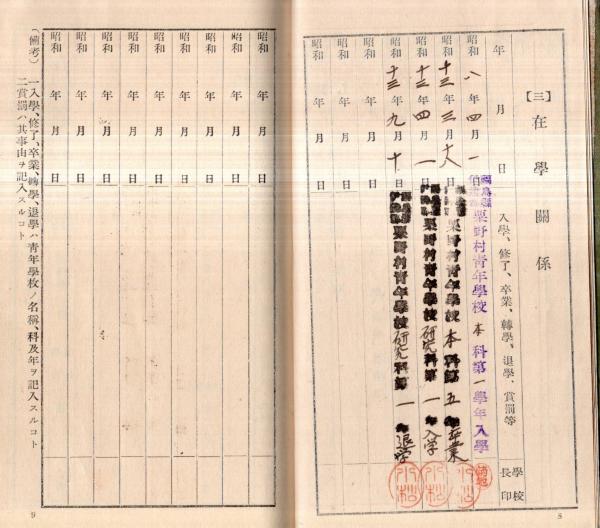 【三】在學關係
年 月 日 入學、修了、卒業、轉學、退學、賞罰等 學校長印
昭和 八年 四月 一日 福島縣 栗野村青年學校 本科第一學年入學
昭和 十三年 三月 十八日 栗野村青年學校 本科第五年卒業 小松
昭和 十三年 四月 一日 栗野村青年學校 研究科第一年入学 小松
昭和 十三年 九月 十日 栗野村青年學校 研究科第一年退学 小松
昭和 年 月 日
昭和 年 月 日
8
昭和 年 月 日
昭和 年 月 日
昭和 年 月 日
昭和 年 月 日
昭和 年 月 日
昭和 年 月 日
昭和 年 月 日
(備考) 一入學、修了、卒業、轉學、退學ハ青年學校ノ名稱、科及年ヲ記入スルコト
二賞罰ハ其事由ヲ記入スルコト
9